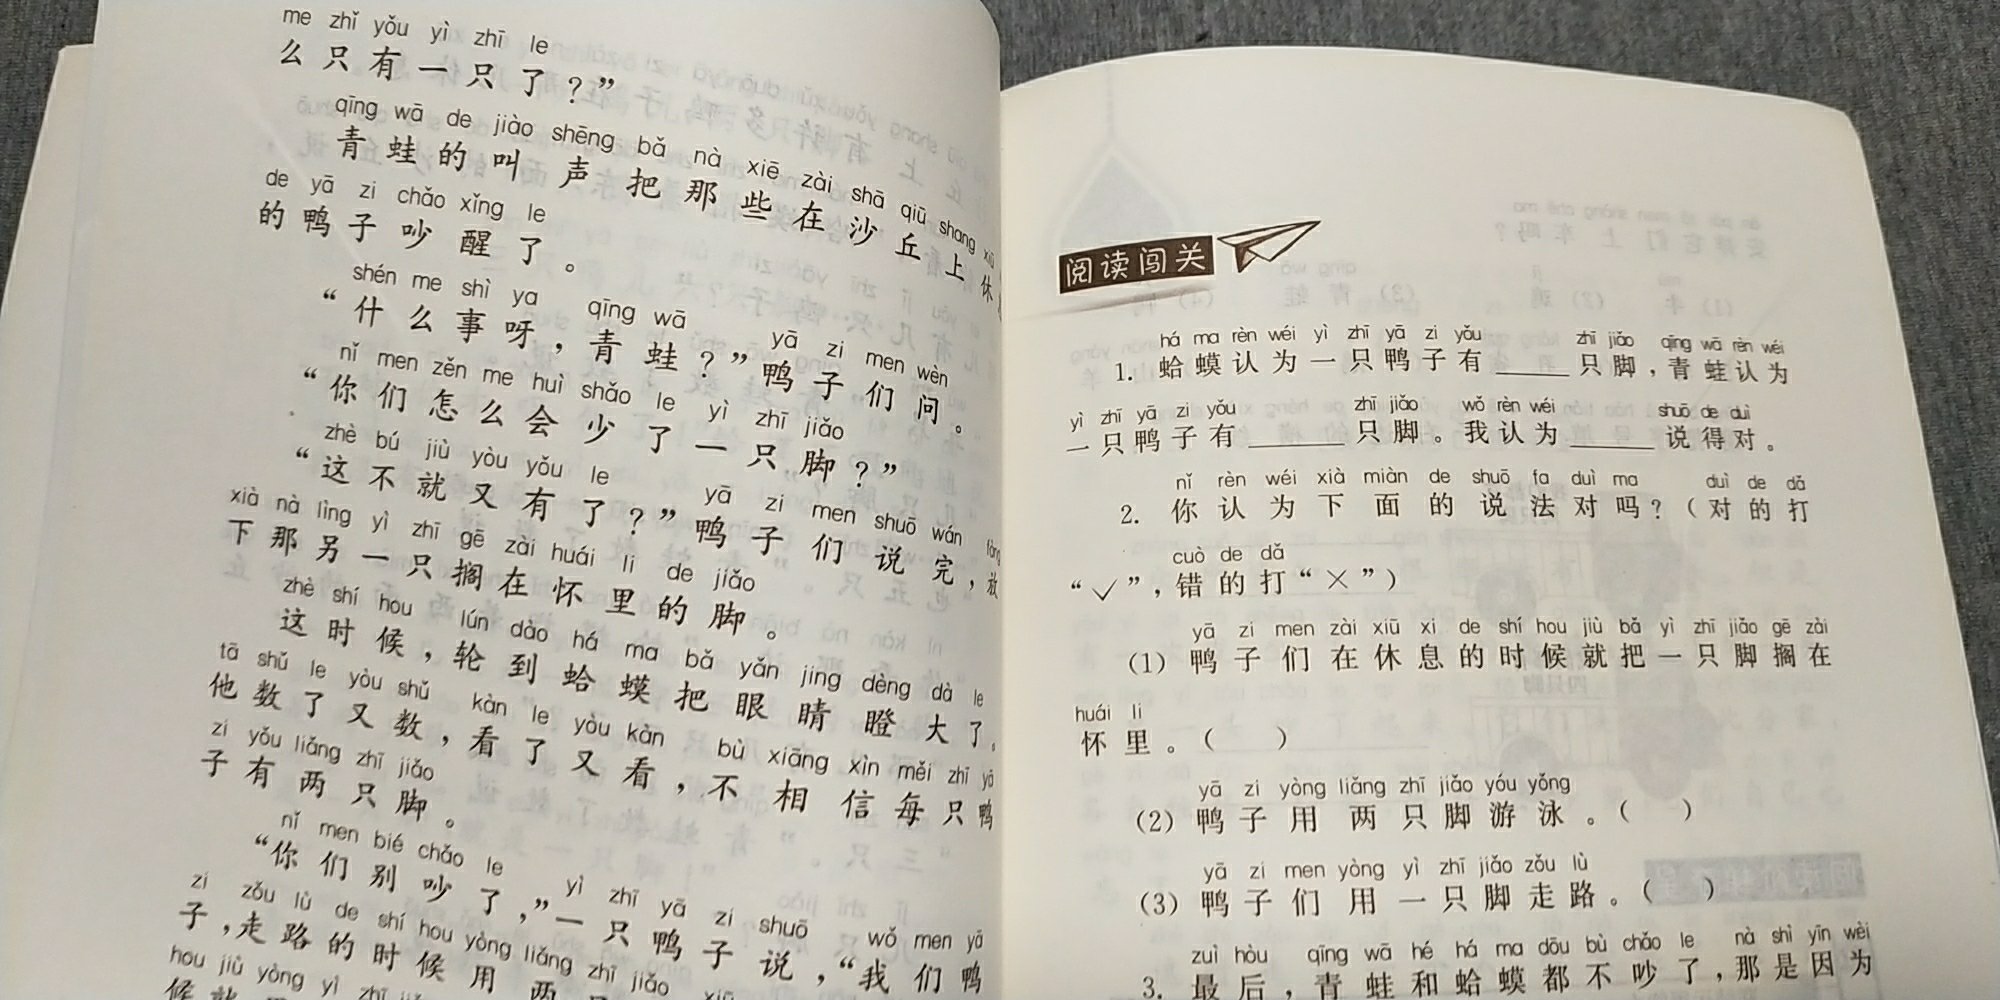 me zhǐ yǒu yì zhī le
么只有一只了？”
qīng wā de jiào shēng bǎ nà xiē zài shā qiū shang xiū
青蛙的叫声把那些在沙丘上休
de yā zi chǎo xǐng le
的鸭子吵醒了。
shén me shì ya qīng wā yā zi men wèn
“什么事呀，青蛙？”鸭子们问。
nǐ men zěn me huì shǎo le yì zhī jiǎo
“你们怎么会少了一只脚？”
zhè bú jiù yòu yǒu le yā zi men shuō wán fàng
“这不就又有了？”鸭子们说完，放
xià nà lìng yì zhī gē zài huái li de jiǎo
下那另一只搁在怀里的脚。
zhè shí hou lún dào há ma bǎ yǎn jing dèng dà le
这时候，轮到蛤蟆把眼睛瞪大了。
tā shǔ le yòu shǔ kàn le yòu kàn bù xiāng xìn měi zhī yā
他数了又数，看了又看，不相信每只鸭
zi yǒu liǎng zhī jiǎo
子有两只脚。
nǐ men bié chǎo le yì zhī yā zi shuō wǒ men yā
“你们别吵了，”一只鸭子说，“我们鸭
zi zǒu lù de shí hou yòng liǎng zhī jiǎo xiū
子，走路的时候用两只
hou jiù yòng yì zhī
候就用
阅读闯关
há ma rèn wéi yì zhī yā zi yǒu zhī jiǎo qīng wā rèn wéi
1. 蛤蟆认为一只鸭子有____只脚，青蛙认为
yì zhī yā zi yǒu zhī jiǎo wǒ rèn wéi shuō de duì
一只鸭子有____只脚。我认为____说得对。
nǐ rèn wéi xià miàn de shuō fa duì ma duì de dǎ
2. 你认为下面的说法对吗？（对的打
cuò de dǎ
“✓”，错的打“×”）
yā zi men zài xiū xi de shí hou jiù bǎ yì zhī jiǎo gē zài
（1）鸭子们在休息的时候就把一只脚搁在
huái li
怀里。（ ）
yā zi yòng liǎng zhī jiǎo yóu yǒng
（2）鸭子用两只脚游泳。（ ）
yā zi men yòng yì zhī jiǎo zǒu lù
（3）鸭子们用一只脚走路。（ ）
zuì hòu qīng wā hé há ma dōu bù chǎo le nà shì yīn wèi
3. 最后，青蛙和蛤蟆都不吵了，那是因为